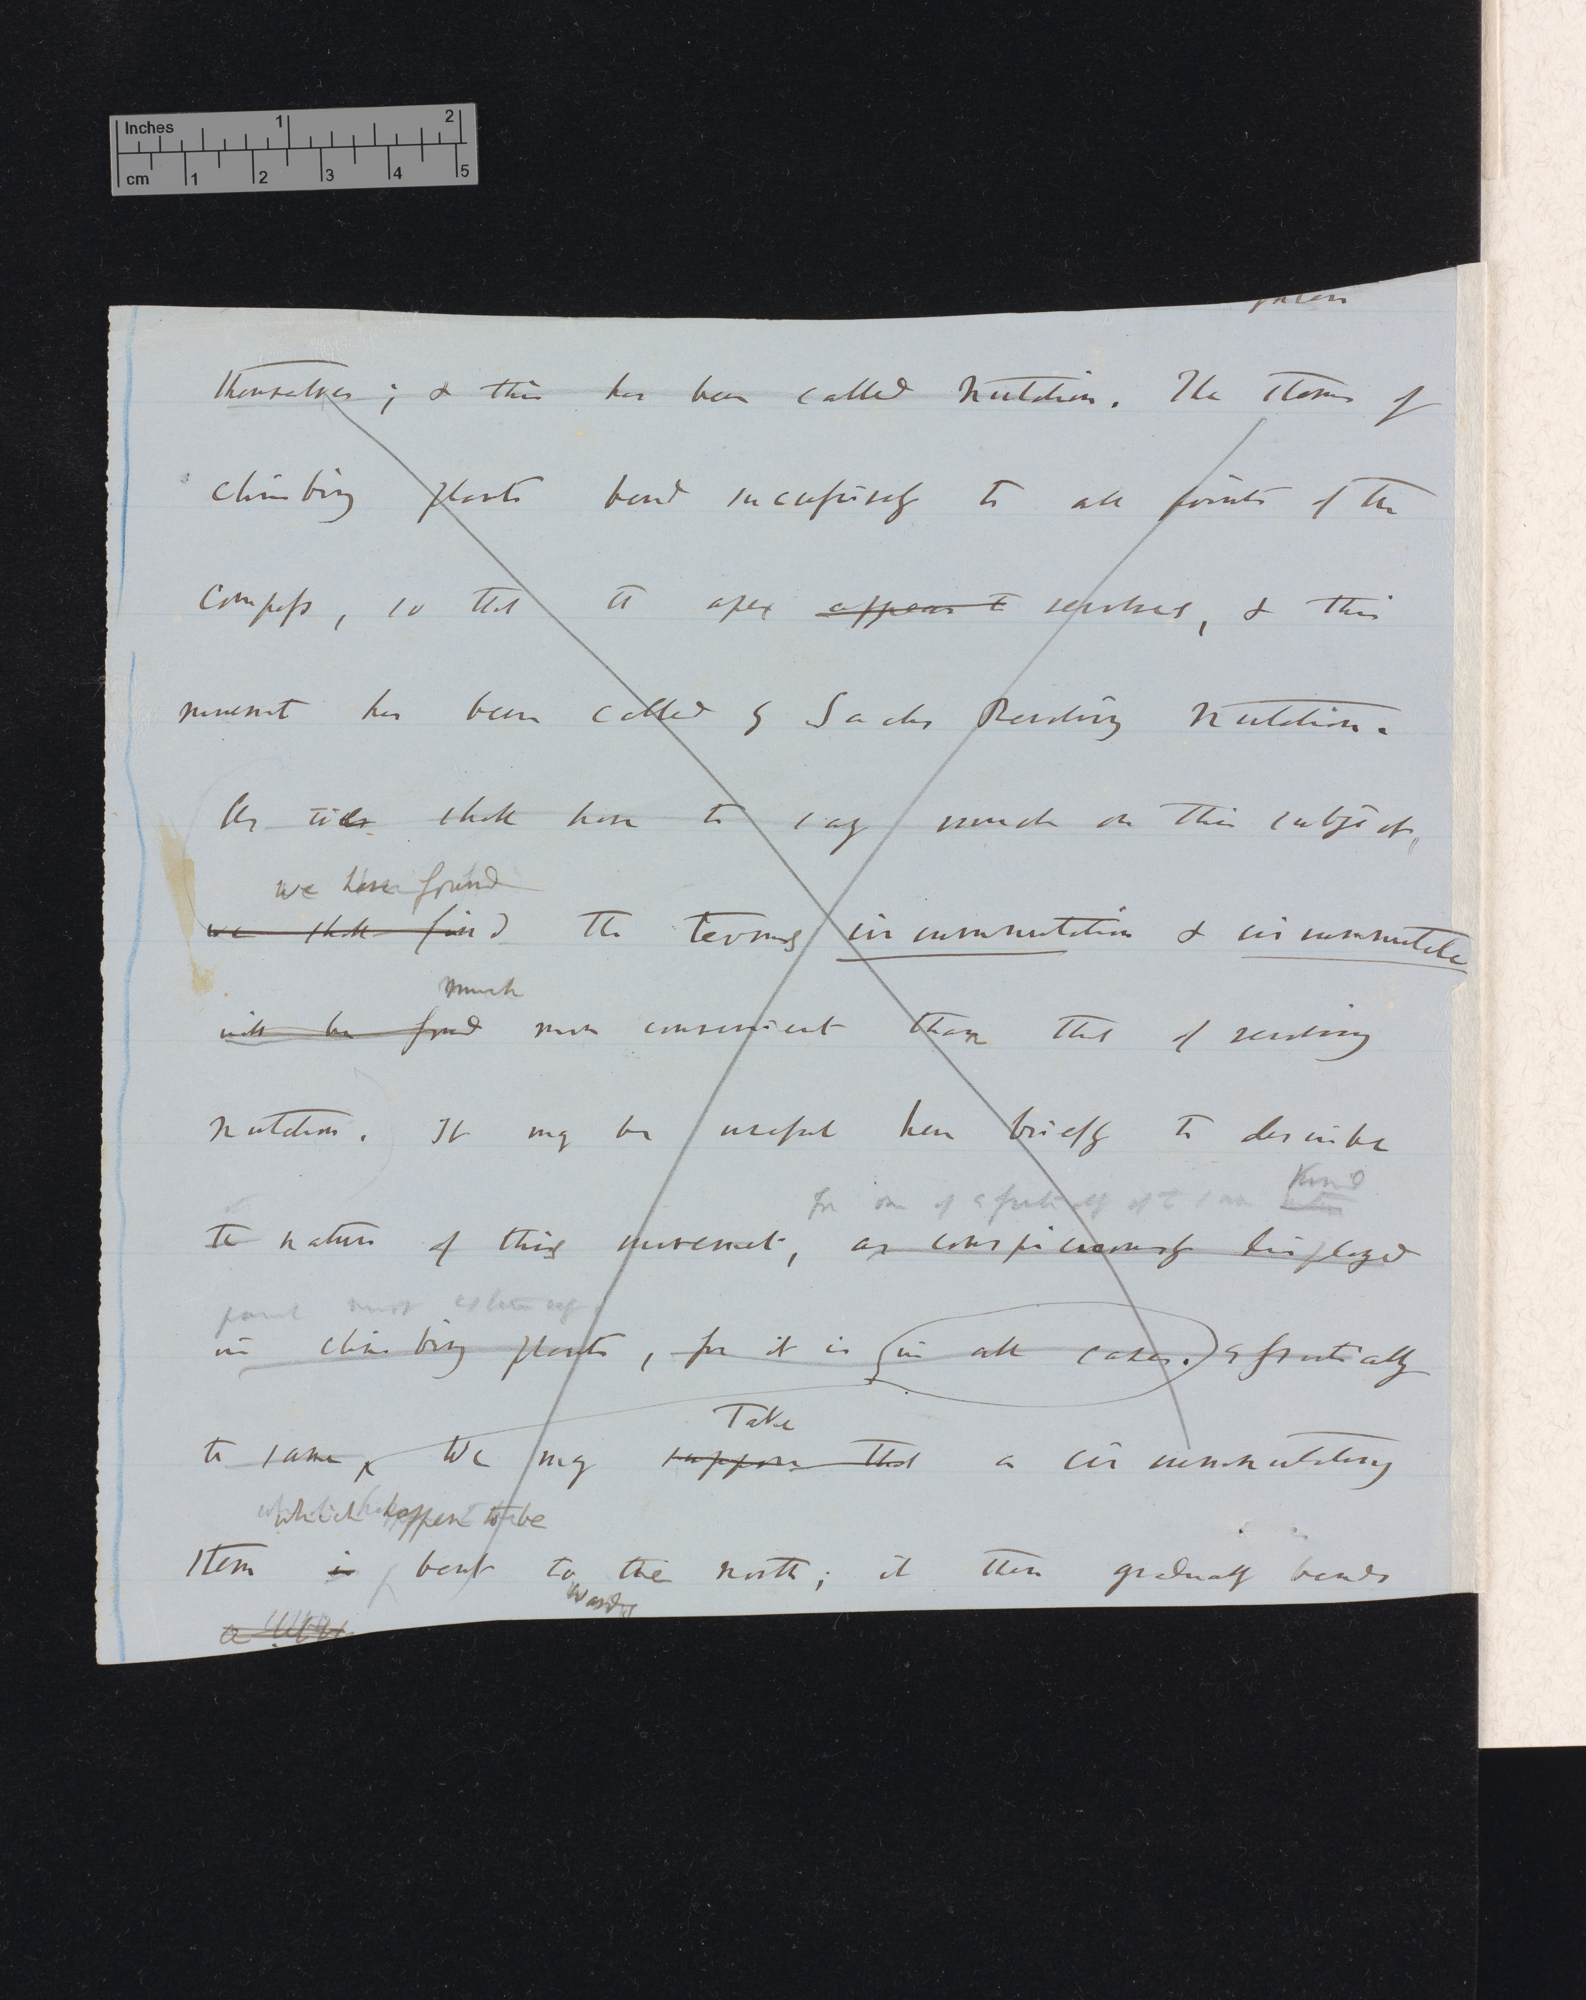 Inches 1 2
cm 1 2 3 4 5
themselves; & this has been called Nutation. The stems of
climbing plants bend successively to all points of the
compass, so that the apex appears to revolves, & this
movement has been called by Sachs Revolving Nutation.
As we shall have to say much on this subject,
we have found
we shall find the terms circumnutation & circumnutate
much
will be found more convenient than that of revolving
nutation. It may be useful here briefly to describe
for one of essentially of the same kind
the nature of this movement, as conspicuously displayed
in climbing plants, for it is in all cases. essentially
Take
the same, We may suppose that a circumnutating
which happens to be
stem is bent to the north; it then gradually bends
wards